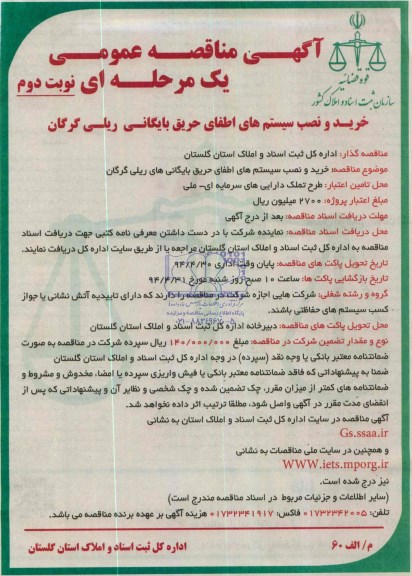 آگهی مناقصه عمومی
یک مرحله ای نوبت دوم
قوه قضائیه
سازمان ثبت اسناد و املاک کشور
خرید و نصب سیستم های اطفای حریق بایگانی ریلی گرگان
مناقصه گذار: اداره کل ثبت اسناد و املاک استان گلستان
موضوع مناقصه: خرید و نصب سیستم های اطفای حریق بایگانی های ریلی گرگان
محل تامین اعتبار: طرح تملک دارایی های سرمایه ای- ملی
مبلغ اعتبار پروژه: ۲۷۰۰ میلیون ریال
مهلت دریافت اسناد مناقصه: بعد از درج آگهی
محل دریافت اسناد مناقصه: نماینده شرکت با در دست داشتن معرفی نامه کتبی جهت دریافت اسناد
مناقصه به اداره کل ثبت اسناد و املاک استان گلستان مراجعه یا از طریق سایت اداره کل دریافت نمایند.
تاریخ تحویل پاکت های مناقصه: پایان وقت اداری ۹۴/۴/۳۰
تاریخ بازگشایی پاکت ها: ساعت ۱۰ صبح روز شنبه مورخ ۹۴/۴/۳۱
گروه و رشته شغلی: شرکت هایی اجازه شرکت در مناقصه را دارند که دارای تاییدیه آتش نشانی یا جواز
کسب سیستم های حفاظتی باشند.
محل تحویل پاکت های مناقصه: دبیرخانه اداره کل ثبت اسناد و املاک استان گلستان
نوع و مقدار تضمین شرکت در مناقصه: مبلغ ۱۴۰/۰۰۰/۰۰۰ ریال سپرده شرکت در مناقصه به صورت
ضمانتنامه معتبر بانکی یا وجه نقد (سپرده) در وجه اداره کل ثبت اسناد و املاک استان گلستان
ضمنا به پیشنهاداتی که فاقد ضمانتنامه معتبر بانکی یا فیش واریزی سپرده یا امضا، مخدوش و مشروط و
ضمانتنامه های کمتر از میزان مقرر، چک تضمین شده و چک شخصی و نظایر آن و پیشنهاداتی که پس از
انقضای مدت مقرر در آگهی واصل شود، مطلقا ترتیب اثر داده نخواهد شد.
آگهی مناقصه در سایت اداره کل ثبت اسناد و املاک استان به نشانی
Gs.ssaa.ir
و همچنین در سایت ملی مناقصات به نشانی
WWW.iets.mporg.ir
نیز درج شده است.
(سایر اطلاعات و جزئیات مربوط در اسناد مناقصه مندرج است)
تلفن: ۰۱۷۳۲۳۴۲۰۰۵ فاکس: ۰۱۷۳۲۳۴۱۹۱۷ هزینه آگهی بر عهده برنده مناقصه می باشد.
م/ الف ۶۰
اداره کل ثبت اسناد و املاک استان گلستان